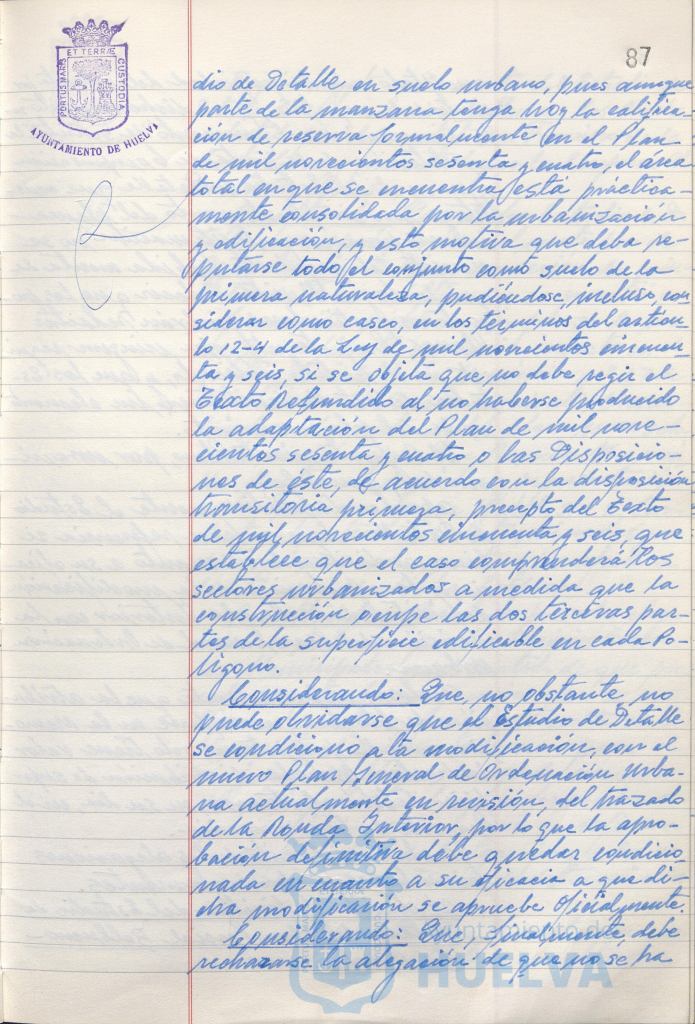 87
PORTUS MARIS ET TERRÆ CUSTODIA
AYUNTAMIENTO DE HUELVA
dio de Detalle en suelo urbano, pues aunque
parte de la manzana tenga hoy la califica-
ción de reserva formalmente en el Plan
de mil novecientos sesenta y cuatro, el area
total en que se encuentra está práctica-
mente consolidada por la urbanización
y edificación, y esto motiva que deba re-
putarse todo el conjunto como suelo de la
primera naturaleza, pudiéndose, incluso, con
siderar como casco, en los términos del artícu-
lo 12-4 de la Ley de mil novecientos cincuen-
ta y seis, si se objeta que no debe regir el
Texto Refundido al no haberse producido
la adaptación del Plan de mil nove-
cientos sesenta y cuatro o las Disposicio-
nes de éste, de acuerdo con la disposición
transitoria primera, precepto del Texto
de mil novecientos cincuenta y seis, que
establece que el casco comprenderá los
sectores urbanizados a medida que la
construcción ocupe las dos terceras par-
tes de la superficie edificable en cada Po-
lígono.
Considerando: Que, no obstante no
puede olvidarse que el Estudio de Detalle
se condiciono a la modificación, con el
nuevo Plan General de Ordenación Urba-
na actualmente en revisión, del trazado
de la Ronda Interior, por lo que la apro-
bación definitiva debe quedar condicio-
nada en cuanto a su eficacia a que di-
cha modificación se apruebe oficialmente.
Considerando: Que, finalmente, debe
rechazarse la alegación de que no se ha
Ayuntamiento de
HUELVA